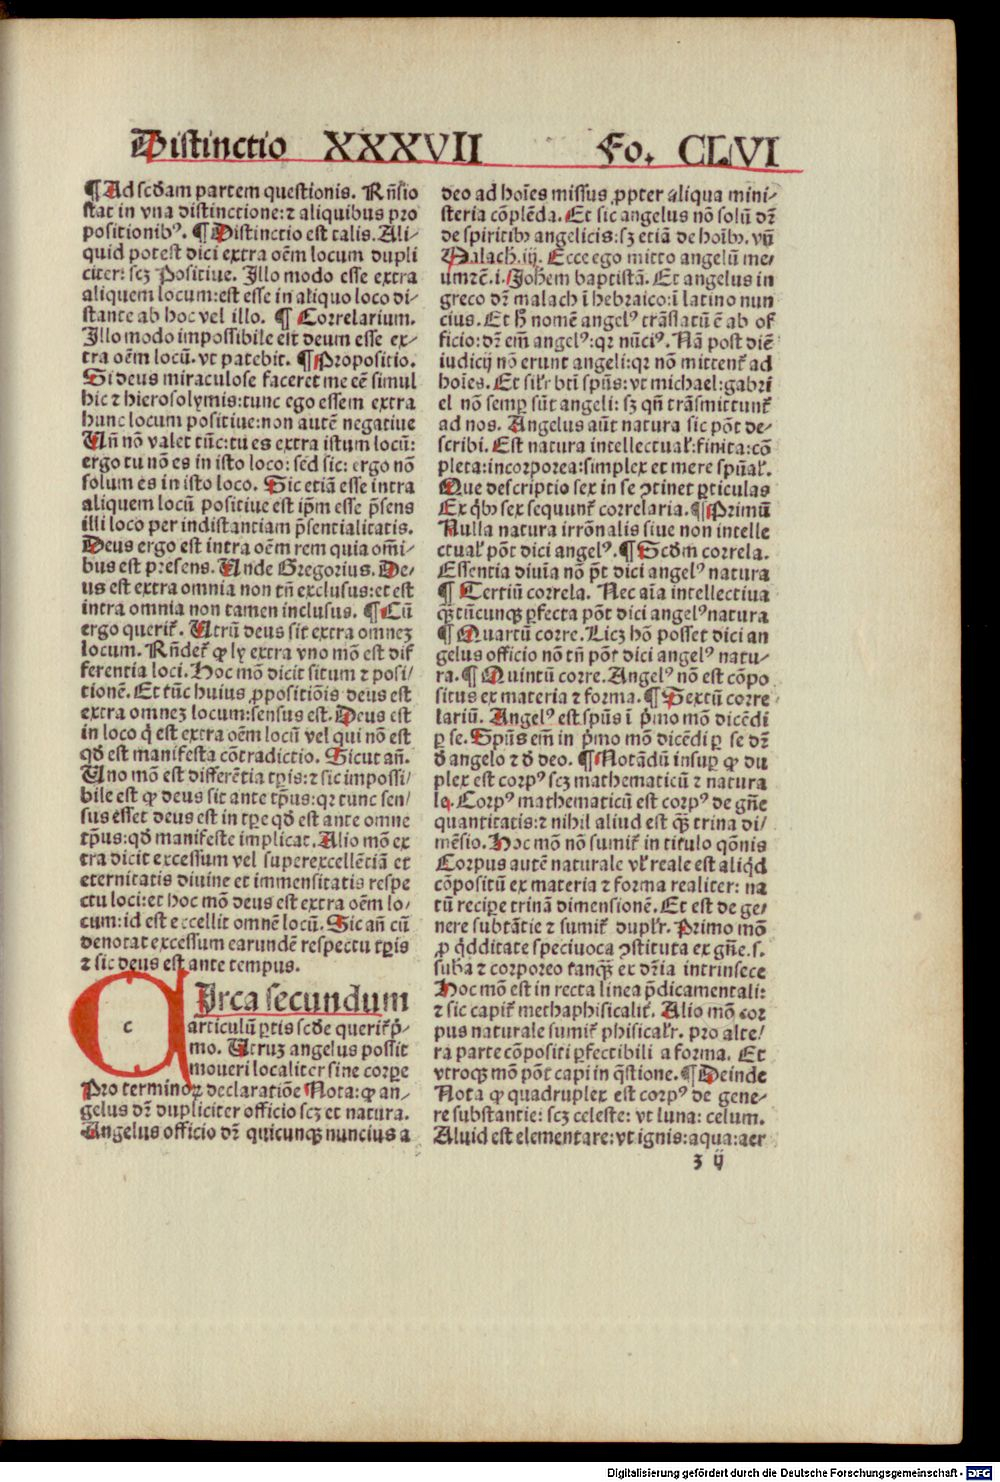 Distinctio XXXVII Fo. CLVI
¶ Ad scd̄am partem questionis. Rn̄sio
stat in vna distinctione: ⁊ aliquibus pro
positionibꝰ. ¶ Distinctio est talis. Ali-
quid potest dici extra oēm locum dupli
citer: scꝫ Positiue. Illo modo esse extra
aliquem locum: est esse in aliquo loco di-
stante ab hoc vel illo. ¶ Correlarium.
Illo modo impossibile eit deum esse ex-
tra oēm locū. vt patebit. ¶ Propositio.
Si deus miraculose faceret me eē simul
hic ⁊ hierosolymis: tunc ego essem extra
hunc locum positiue: non autē negatiue
Un̄ nō valet tūc: tu es extra istum locū:
ergo tu nō es in isto loco: sed sic: ergo nō
solum es in isto loco. Sic etiā esse intra
aliquem locū positiue est ip̄m esse p̄sens
illi loco per indistantiam p̄sentialitatis.
Deus ergo est intra oēm rem quia om̄i-
bus est presens. Unde Gregorius. De-
us est extra omnia non tn̄ exclusus: et est
intra omnia non tamen inclusus. ¶ Cū
ergo queriṫ. Utrū deus sit extra omneꝫ
locum. Rn̄deṫ ꝙ ly extra vno mō est dif
ferentia loci. Hoc mō dicit situm ⁊ posi-
tionē. Et tūc huius ꝓpositiōis deus est
extra omneꝫ locum: sensus est. Deus est
in loco q̇ est extra oēm locū vel qui nō est
qd̄ est manifesta cōtradictio. Sicut an̄.
Uno mō est differētia tꝑis: ⁊ sic impossi-
bile est ꝙ deus sit ante tp̄us: qr tunc sen-
sus esset deus est in tꝑe qd̄ est ante omne
tp̄us: qd̄ manifeste implicat. Alio mō ex
tra dicit excessum vel superexcellētiā et
eternitatis diuine et immensitatis respe
ctu loci: et hoc mō deus est extra oēm lo-
cum: id est excellit omnē locū. Sic an̄ cū
denotat excessum earundē respectu tꝑis
⁊ sic deus est ante tempus.
c
CIrca secundum
articulū ꝑtis scd̄e queriṫ p̄-
mo. Utruꝫ angelus possit
moueri localiter sine corꝑe
Pro terminoꝝ declaratiōe Nota: ꝙ an-
gelus dr̄ dupliciter officio scꝫ et natura.
Angelus officio dr̄ quicunqꝫ nuncius a
deo ad hoīes missus ꝓpter aliqua mini-
steria cōplēda. Et sic angelus nō solū dr̄
de spiritibꝫ angelicis: sꝫ etiā de hoībꝫ. vn̄
Malach. iij. Ecce ego mitto angelū me-
um ⁊cē. i. Joh̄em baptistā. Et angelus in
greco dr̄ malach ī hebraico: ī latino nun
cius. Et h̄ nomē angelꝰ trāslatū ē ab of
ficio: dr̄ em̄ angelꝰ: qr nūciꝰ. Nā post diē
iudicij nō erunt angeli: qr nō mittenṫ ad
hoīes. Et sil'r bt̄i spūs: vt michael: gabri
el nō semꝑ sūt angeli: sꝫ qn̄ trāsmittunṫ
ad nos. Angelus aūt natura sic pōt de-
scribi. Est natura intellectual': finita: cō
pleta: incorporea: simplex et mere spūal'.
Que descriptio sex in se ↄtinet ꝑticulas
Ex qbꝫ sex sequunṫ correlaria. ¶ Primū
Nulla natura irrōnalis siue non intelle
ctual' pōt dici angelꝰ. ¶ Scd̄m correla.
Essentia diuīa nō pōt dici angelꝰ natura
¶ Tertiū correla. Nec aīa intellectiua
qꝫtūcunqꝫ ꝑfecta pōt dici angelꝰ natura
¶ Quartū corre. Licꝫ hō posset dici an
gelus officio nō tn̄ pōt dici angelꝰ natu-
ra. ¶ Quintū corre. Angelꝰ nō est cōpo
situs ex materia ⁊ forma. ¶ Sextū corre
lariū. Angelꝰ est spūs ī p̄mo mō dicēdi
ꝑ se. Spūs em̄ in p̄mo mō dicēdi ꝑ se dr̄
d̄ angelo ⁊ d̄ deo. ¶ Notādū insuꝑ ꝙ du
plex est corpꝰ scꝫ mathematicū ⁊ natura
le. Corpꝰ mathematicū est corpꝰ de gn̄e
quantitatis: ⁊ nihil aliud est qꝫ trina di-
mēsio. Hoc mō nō sumiṫ in titulo qōnis
Corpus autē naturale vl' reale est aliqd
cōpositū ex materia ⁊ forma realiter: na
tū reciꝑe trinā dimensionē. Et est de ge-
nere subtātie ⁊ sumiṫ dupl'r. Primo mō
ꝓ qdditate speciuoca ↄstituta ex gn̄e. s.
suba ⁊ corporeo tanqꝫ ex dr̄ia intrinsece
Hoc mō est in recta linea p̄dicamentali:
⁊ sic capiṫ methaphisicalit'. Alio mō cor
pus naturale sumiṫ phisical'r. pro alte-
ra parte cōpositi ꝑfectibili a forma. Et
vtroqꝫ mō pōt capi in q̄stione. ¶ Deinde
Nota ꝙ quadruplex est corpꝰ de gene-
re substantie: scꝫ celeste: vt luna: celum.
Aluid est elementare: vt ignis: aqua: aer
z ij
Digitalisierung gefördert durch die Deutsche Forschungsgemeinschaft - DFG